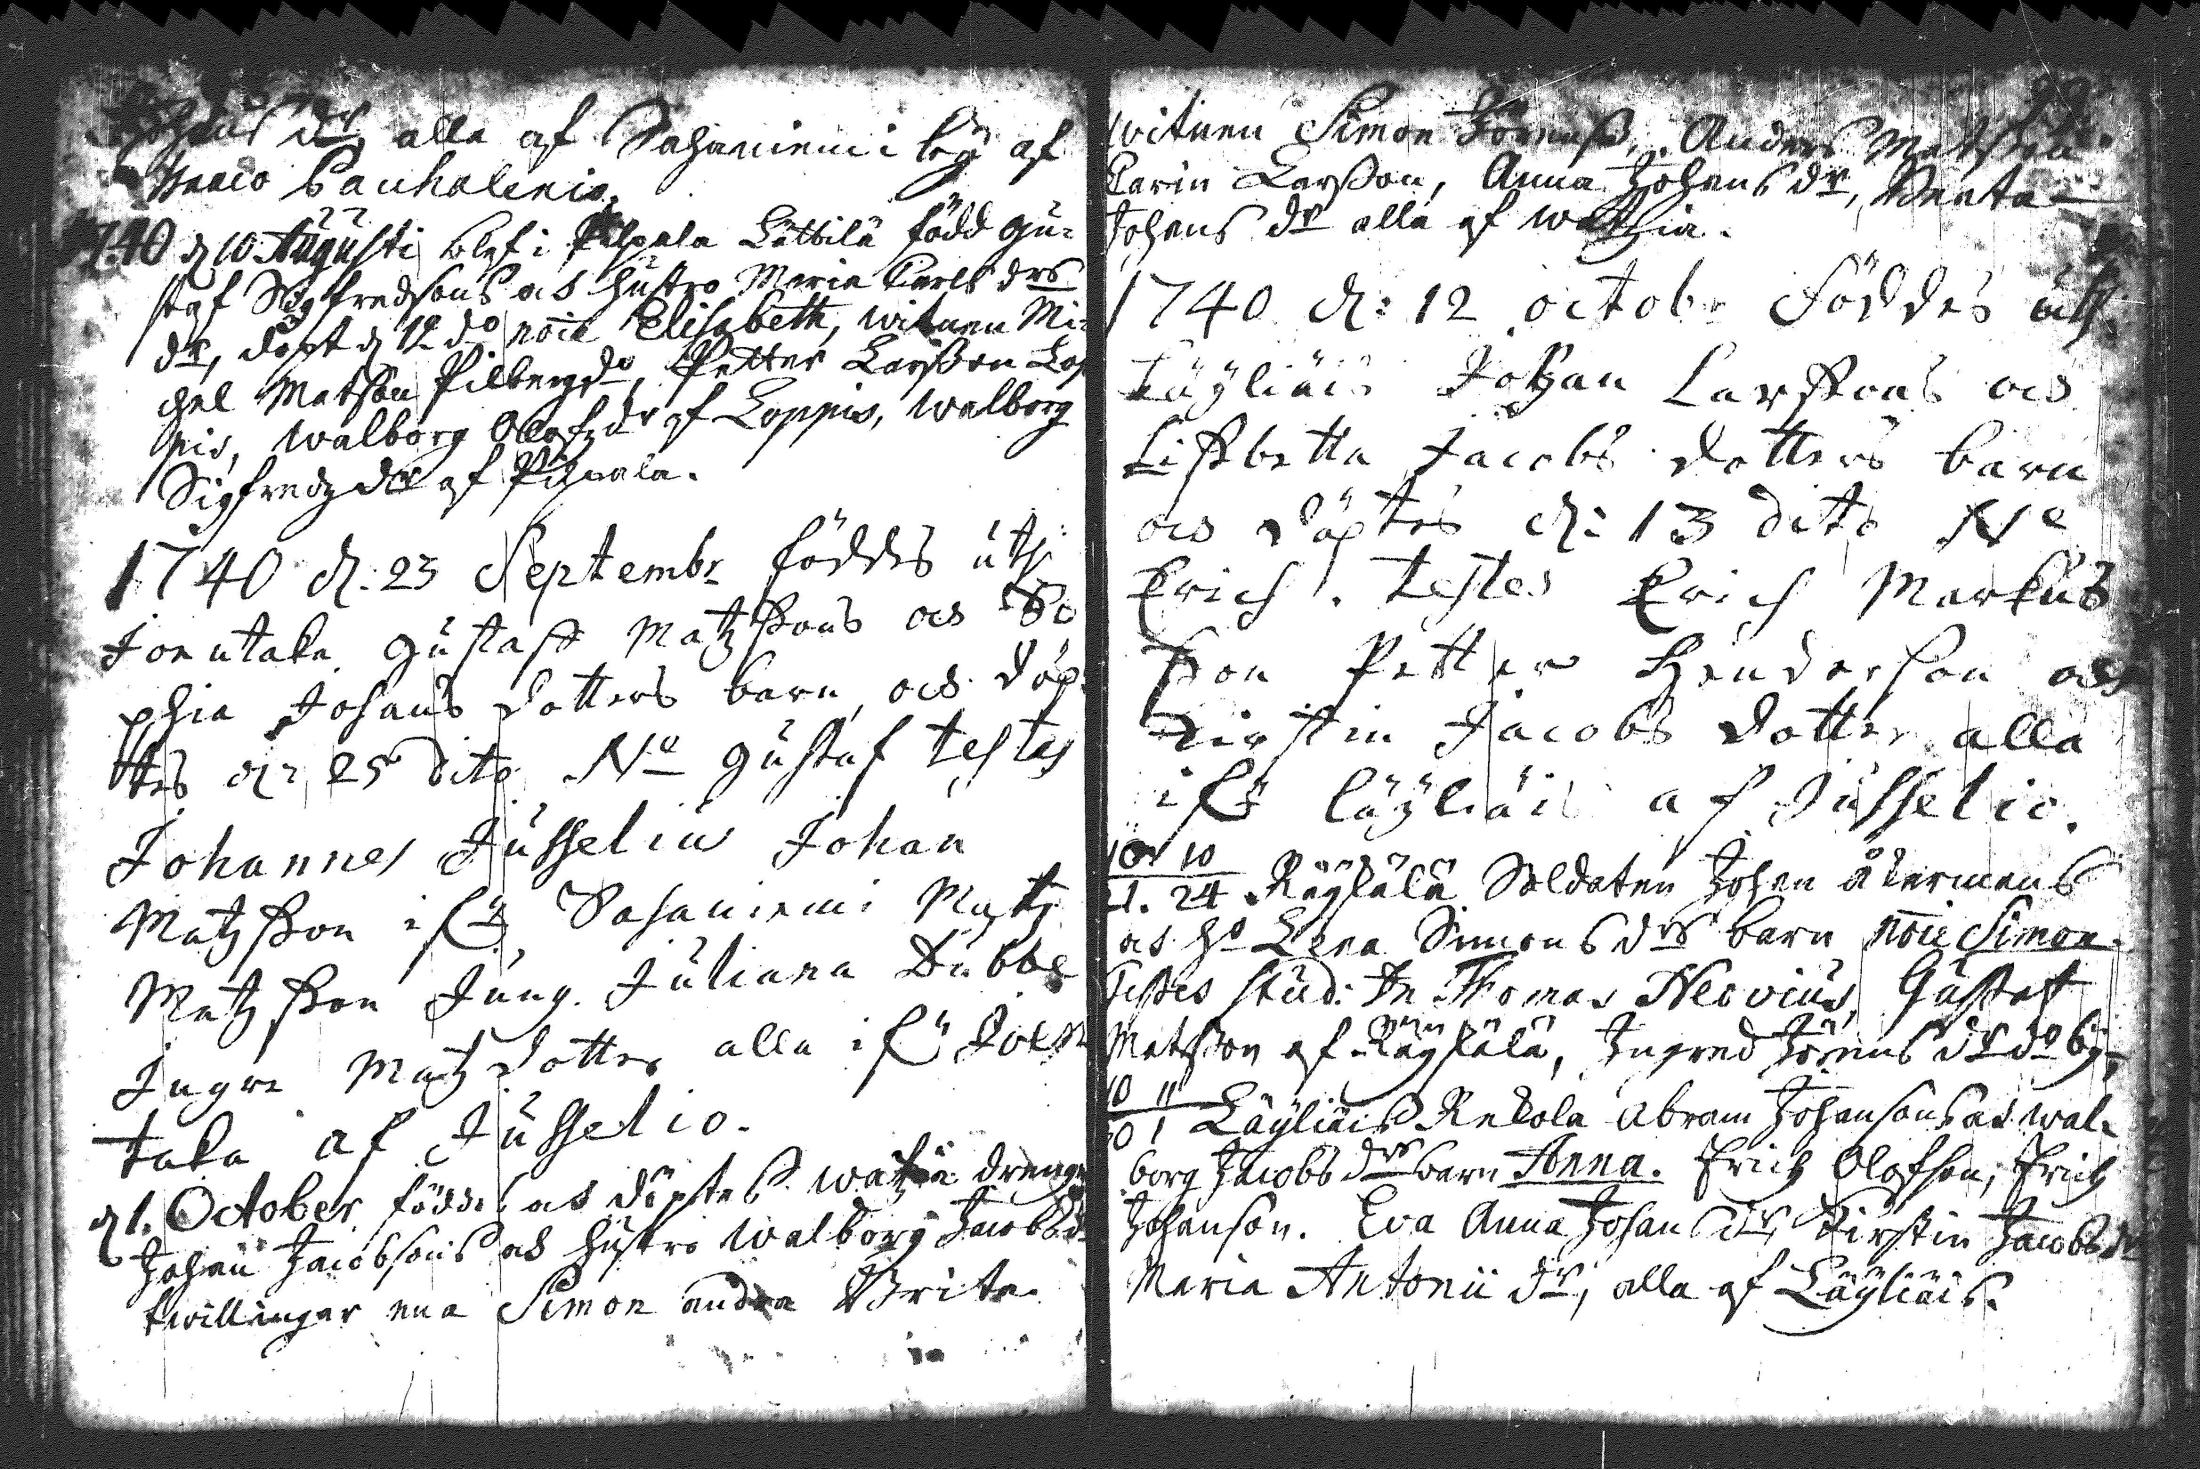 Johans dr, alla af Sahaniemi by af
Isaaco Pauhalenio.
1740 d 10. Augusti blef i Pilpala Lättilä född Gu-
staf Sigfredsons ock hustro Maria Carls drs
dr, döpt d 12 do noie Elisabeth, witnen Mi-
chel Matsson Pilbergdo, Petter Larsson Lop
pis, Walborg Olofz dr af Loppis, Walborg
Sigfredz dr af Pilpala.
1740 d: 23 Septembr föddes uthi
Joentaka Gustaff Matzssons och So
phia Johans dotters barn, och döp
tes d: 25 dito Ne Gustaf testes
Johannes Jusselius Johan
Matzsson ifrå Sahaniemi Matz
Matzsson Jung. Juliana Dubbe
Ingre Matz dotter alla ifrå Joen
taka af Jusselio.
d 1. October födde och döptes Watzia drenge
Johan Jacobsons och hustro Walborg Jacobsd
twillingar ena Simon andra Brita.
witnen Simon Jörenss, Anders Matsson
Carin Larsson, Anna Johans dr, Beata
Johans dr alla af Watzia.
1740 d: 12 octobr Föddes uthi
Läyliäis Johan Larssons och
Lissbetta Jacobs dotters barn
och döptes d: 13 dito Ne
Erich. testes Erich Markus
sson Petter Henderson och
Kirstin Jacobs dotter alla
ifrå läyliäis af Jusselio.
10 10
21. 24 Räyskälä Soldaten Johan Åkermans
och ho Lena Simons drs barn noie Simon.
Testes Stud: Dn Thomas Neovius, Gustaf
Matsson af Räyskälä, Ingred Jörens dr do by,
10 11
30 1 Läyliäis Rekola Abram Johansons och Wal-
borg Jacobs drs barn Anna. Erich Olofson, Erich
Johanson. Eva Anna Johans dr, Kirstin Jacobs dr
Maria Antonii dr, alla af Läyliäis.